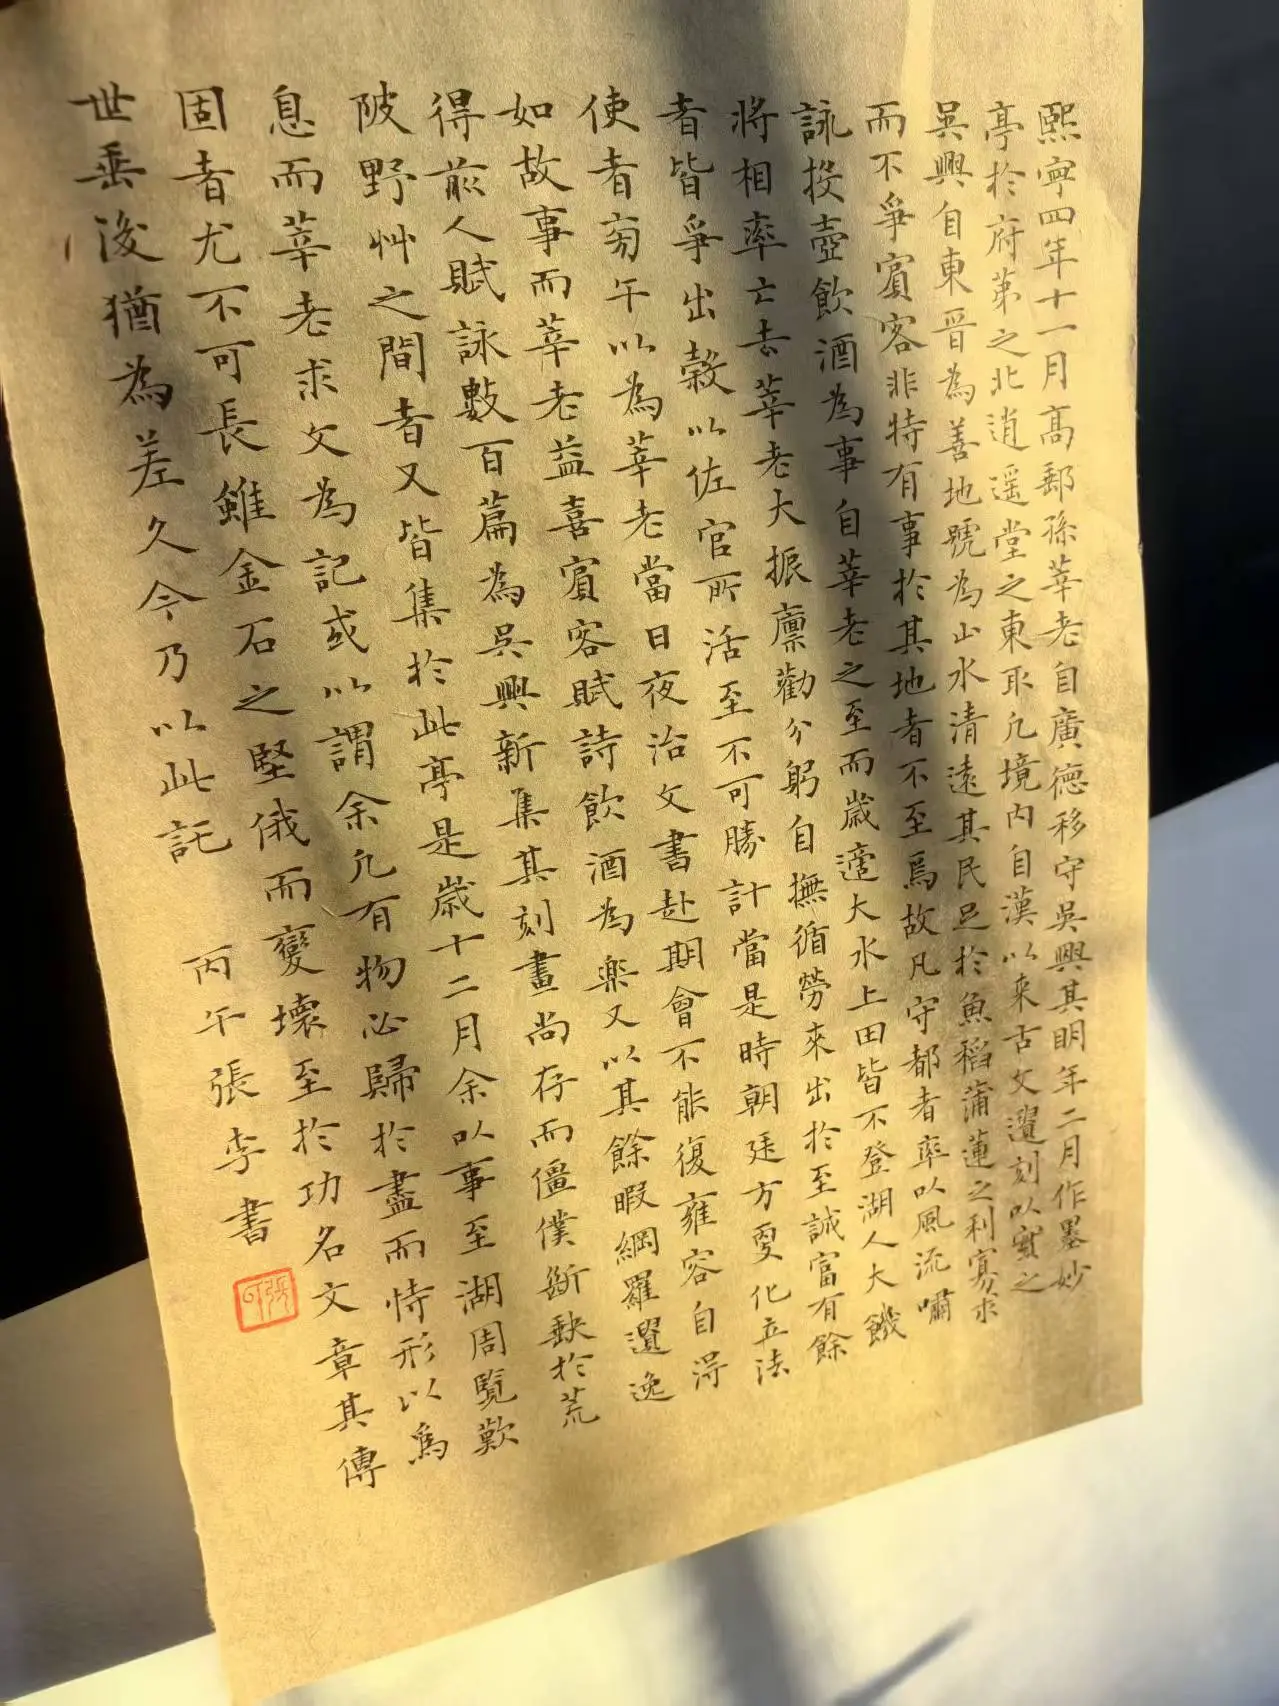 熙寧四年十一月高郵孫莘老自廣德移守吳興其明年二月作墨妙
亭於府第之北逍遥堂之東取凢境内自漢以來古文遺刻以實之
吳興自東晉為善地號為山水清遠其民足於魚稻蒲蓮之利寡求
而不爭賓客非特有事於其地者不至焉故凡守郡者率以風流嘯
詠投壺飲酒為事自莘老之至而歲適大水上田皆不登湖人大饑
將相率亡去莘老大振廪勸分躬自撫循勞來出於至誠富有餘
者皆爭出穀以佐官所活至不可勝計當是時朝廷方更化立法
使者旁午以為莘老當日夜治文書赴期會不能復雍容自得
如故事而莘老益喜賓客賦詩飲酒為樂又以其餘暇網羅遺逸
得前人賦詠數百篇為吳興新集其刻畫尚存而僵仆斷缺於荒
陂野艸之間者又皆集於此亭是歲十二月余以事至湖周覽歎
息而莘老求文為記或以謂余凢有物必歸於盡而恃形以為
固者尤不可長雖金石之堅俄而變壞至於功名文章其傳
世垂後猶為差久今乃以此託
丙午張李書